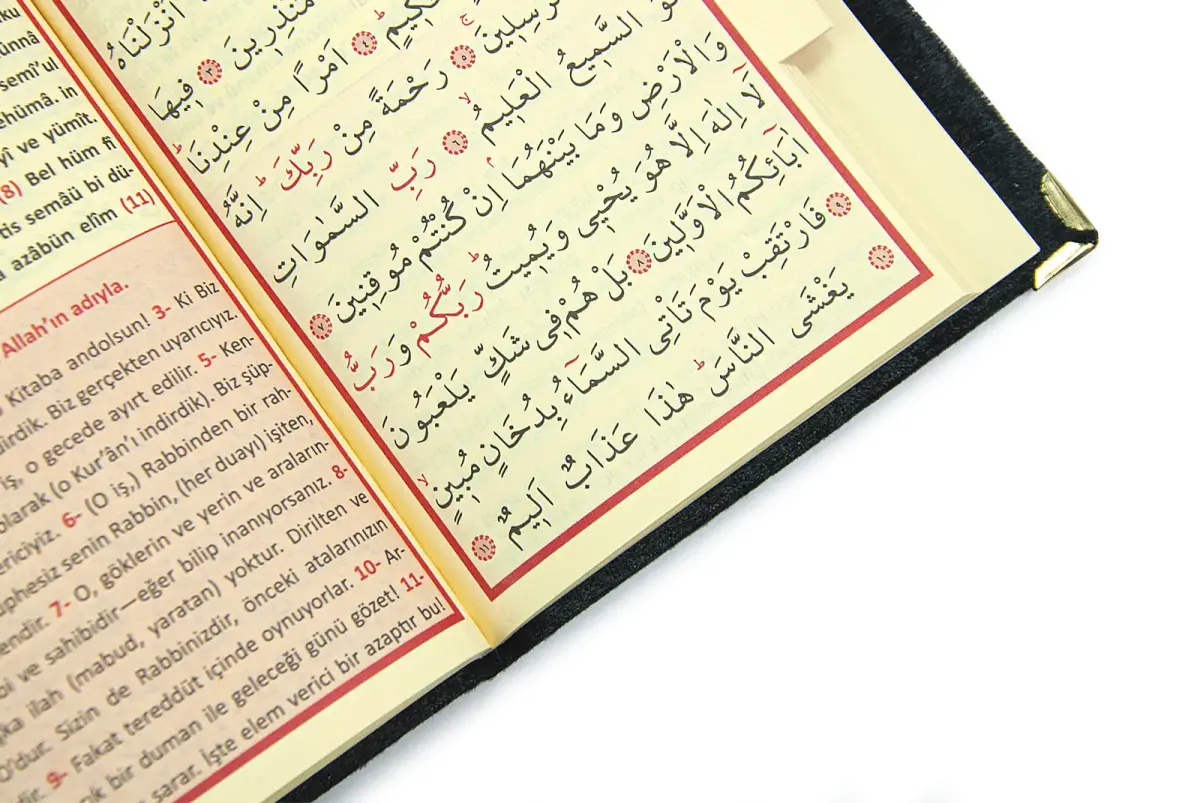 اَنْزَلْنَاهُ
مُنْذِرِينَ ٣ فِيهَا
٤ اَمْرًا مِنْ عِنْدِنَا
٥ رَحْمَةً مِنْ رَبِّكَ اِنَّهُ
السَّمِيعُ الْعَلِيمُ ٦ رَبِّ السَّمٰوَاتِ
وَالْاَرْضِ وَمَا بَيْنَهُمَا اِنْ كُنْتُمْ مُوقِنِينَ ٧
لَٓا اِلٰهَ اِلَّا هُوَ يُحْيِى وَيُمِيتُ رَبُّكُمْ وَرَبُّ
اٰبَٓائِكُمُ الْاَوَّلِينَ ٨ بَلْ هُمْ فِى شَكٍّ يَلْعَبُونَ
٩ فَارْتَقِبْ يَوْمَ تَاْتِى السَّمَٓاءُ بِدُخَانٍ مُبِينٍ
١٠ يَغْشَى النَّاسَ هٰذَا عَذَابٌ اَلِيمٌ ١١
semî'ul
ehümâ. in
yî ve yümît.
(8) Bel hüm fî
tis semâü bi dü-
azâbün elîm (11)
Allah'ın adıyla.
Kitaba andolsun! 3- Ki Biz
dirdik. Biz gerçekten uyarıcıyız.
iş, o gecede ayırt edilir. 5- Ken-
olarak (o Kur'ân'ı indirdik). Biz şüp-
ericiyiz. 6- (O iş,) Rabbinden bir rah-
uphesiz senin Rabbin, (her duayı) işiten,
endir. 7- O, göklerin ve yerin ve araların-
bi ve sahibidir—eğer bilip inanıyorsanız. 8-
ka ilah (mabud, yaratan) yoktur. Dirilten ve
O'dur. Sizin de Rabbinizdir, önceki atalarınızın
dir. 9- Fakat tereddüt içinde oynuyorlar. 10- Ar-
bir duman ile geleceği günü gözet! 11-
sarar. İşte elem verici bir azaptır bu!